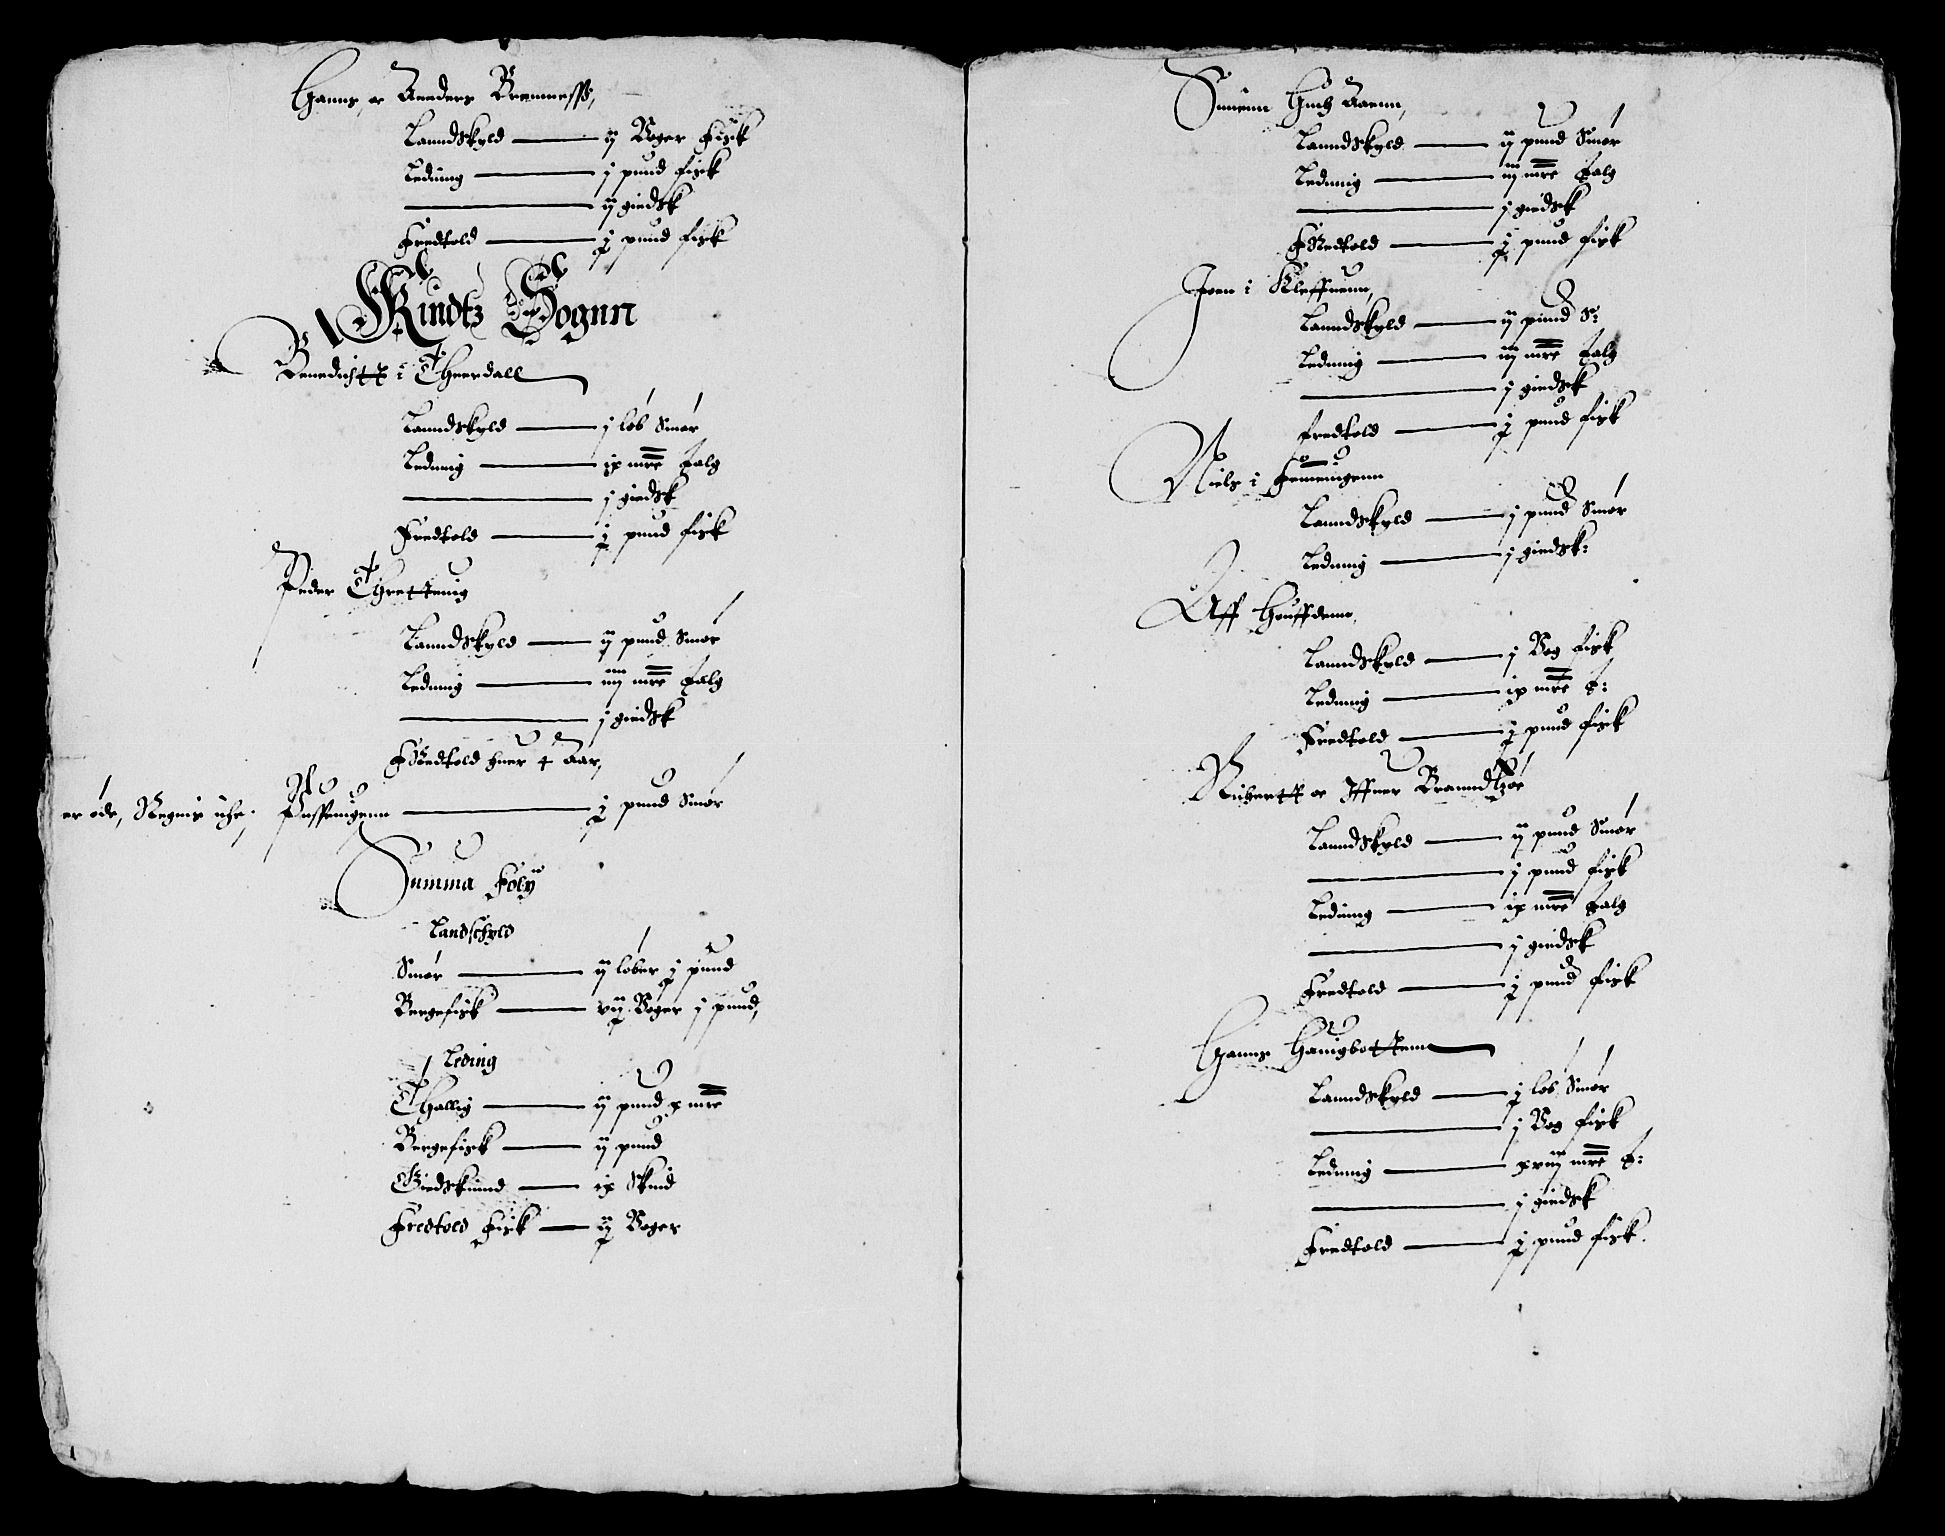 Hanns, oc Anders Bremness,
Lanndskyld — ij Voger Fisk
Leduing — j pund fisk
— ij giedsk
Fredtold — j pund fisk
Kindtz Sognn
Benedichtt i Therdall
Lanndskyld — j løb Smør
Leduing — ix mrk Talg
— j giedsk
Fredtold — j pund fisk
Peder Threttenig
Lanndskyld — ij pund Smør
Leduing — iiij mrk Talg
— j giedsk
Fredtold huer 4 Aar,
er øde, Regnis iche; — j pund Smør
Summa Foly
Landschyld
Smør — ij løber j pund
Bergefisk — vij Voger j pund,
Leding
Thallig — ij pund x mrk
Bergefisk — ij pund
Giedskiund — ix Skind
Fredtold Fisk — ij Voger
Lanndskyld — ij pund Smør
Leduing — iij mrk Talg
— j giedsk
Fredtold — j pund fisk
Joen i Kleffuenn,
Lanndskyld — ij pund S:
Leduing — iij mrk Talg
— j giedsk
fredtold — j pund fisk
Niels i Femmigenn
Lanndskyld — j pund Smør
Leduing — j giedsk:
Aff Houffdenn,
Lanndskyld — j Vog fisk
Leduing — ix mrk t:
Fredtold — j pund fisk
Richertt oc Iffuer Branndtzøe
Lanndskyld — ij pund Smør
— j pund fisk
Leduing — ix mrk Talg
— j giedsk
Fredtold — j pund fisk
Hanns Hauigbottenn
Lanndskyld — j løb Smør
— j Vog fisk
Leduing — xviij mrk t:
— j giedsk
Fredtold — j pund fisk.